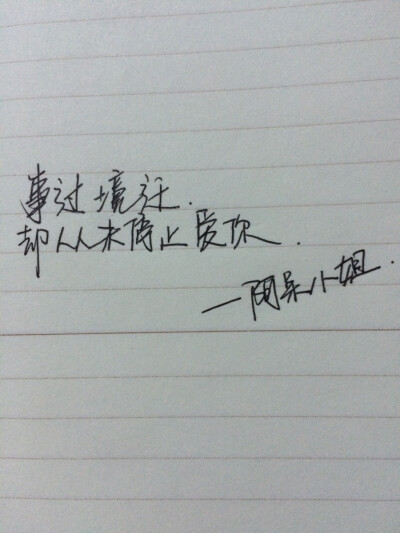 事过境迁.
却从未停止爱你.
—阿呆小姐.